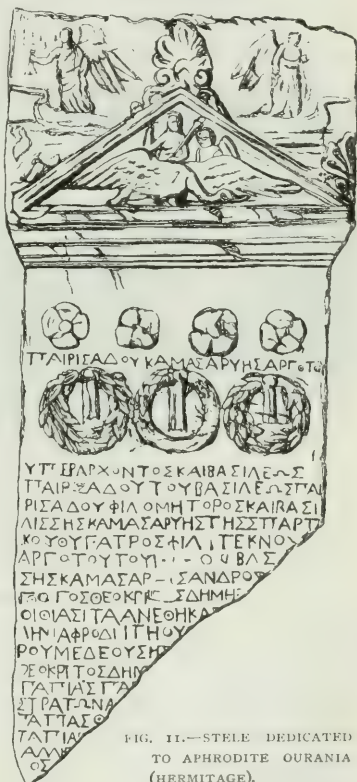 ΠΑΙΡΙΣΑΔΟΥΚΑΜΑΣΑΡΥΗΣΑΡΓΟΤΟΥ
ΥΠΕΡΑΡΧΟΝΤΟΣΚΑΙΒΑΣΙΛΕΩΣ
ΠΑΙΡΙΣΑΔΟΥΤΟΥΒΑΣΙΛΕΩΣΠΑΙ
ΡΙΣΑΔΟΥΦΙΛΟΜΗΤΟΡΟΣΚΑΙΒΑΣΙ
ΛΙΣΣΗΣΚΑΜΑΣΑΡΥΗΣΤΗΣΣΠΑΡΤ
ΚΟΥΘΥΓΑΤΡΟΣΦΙΛ ΤΕΚΝΟΥ
ΑΡΓΟΤΟΥΤΟΥ ΟΥΒΑΣ
ΣΗΣΚΑΜΑΣΑΡ ΙΣΑΝΔΡΟΣ
ΟΓΟΣΘΕΟΚΡΙ ΣΔΗΜΗ
ΟΙΘΙΑΣΙΤΑΑΝΕΘΗΚΑ
ΛΗΝΙΑΦΡΟΔΙΤΗΟΥ
ΡΟΥΜΕΔΕΟΥΣΗ
ΘΕΟΚΡΙΤΟΣΔΗΜ
ΠΑΠΙΑΣΠΑ
ΣΤΡΑΤΩΝΑ
ΠΑΠΠΑΣΘ
ΠΑΠΙΑ
ΑΜΕ
ΟΣ
FIG. 11.—STELE DEDICATED
TO APHRODITE OURANIA
(HERMITAGE).